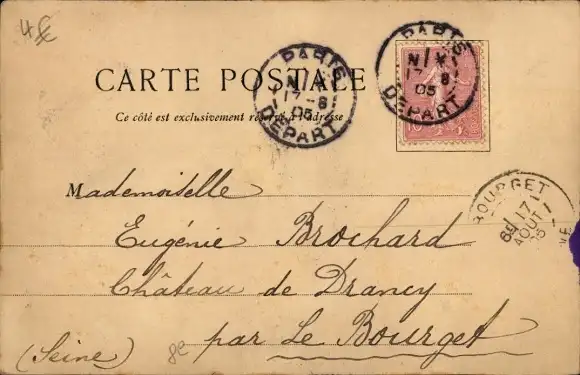 4€
CARTE POSTALE
Ce côté est exclusivement réservé à l'adresse
PARIS
17 - 8
05
DEPART
PARIS
17 - 8
05
DEPART
10
BOURGET
17
AOUT
05
Mademoiselle
Eugénie Brochard
Château de Drancy
par Le Bourget
(Seine)